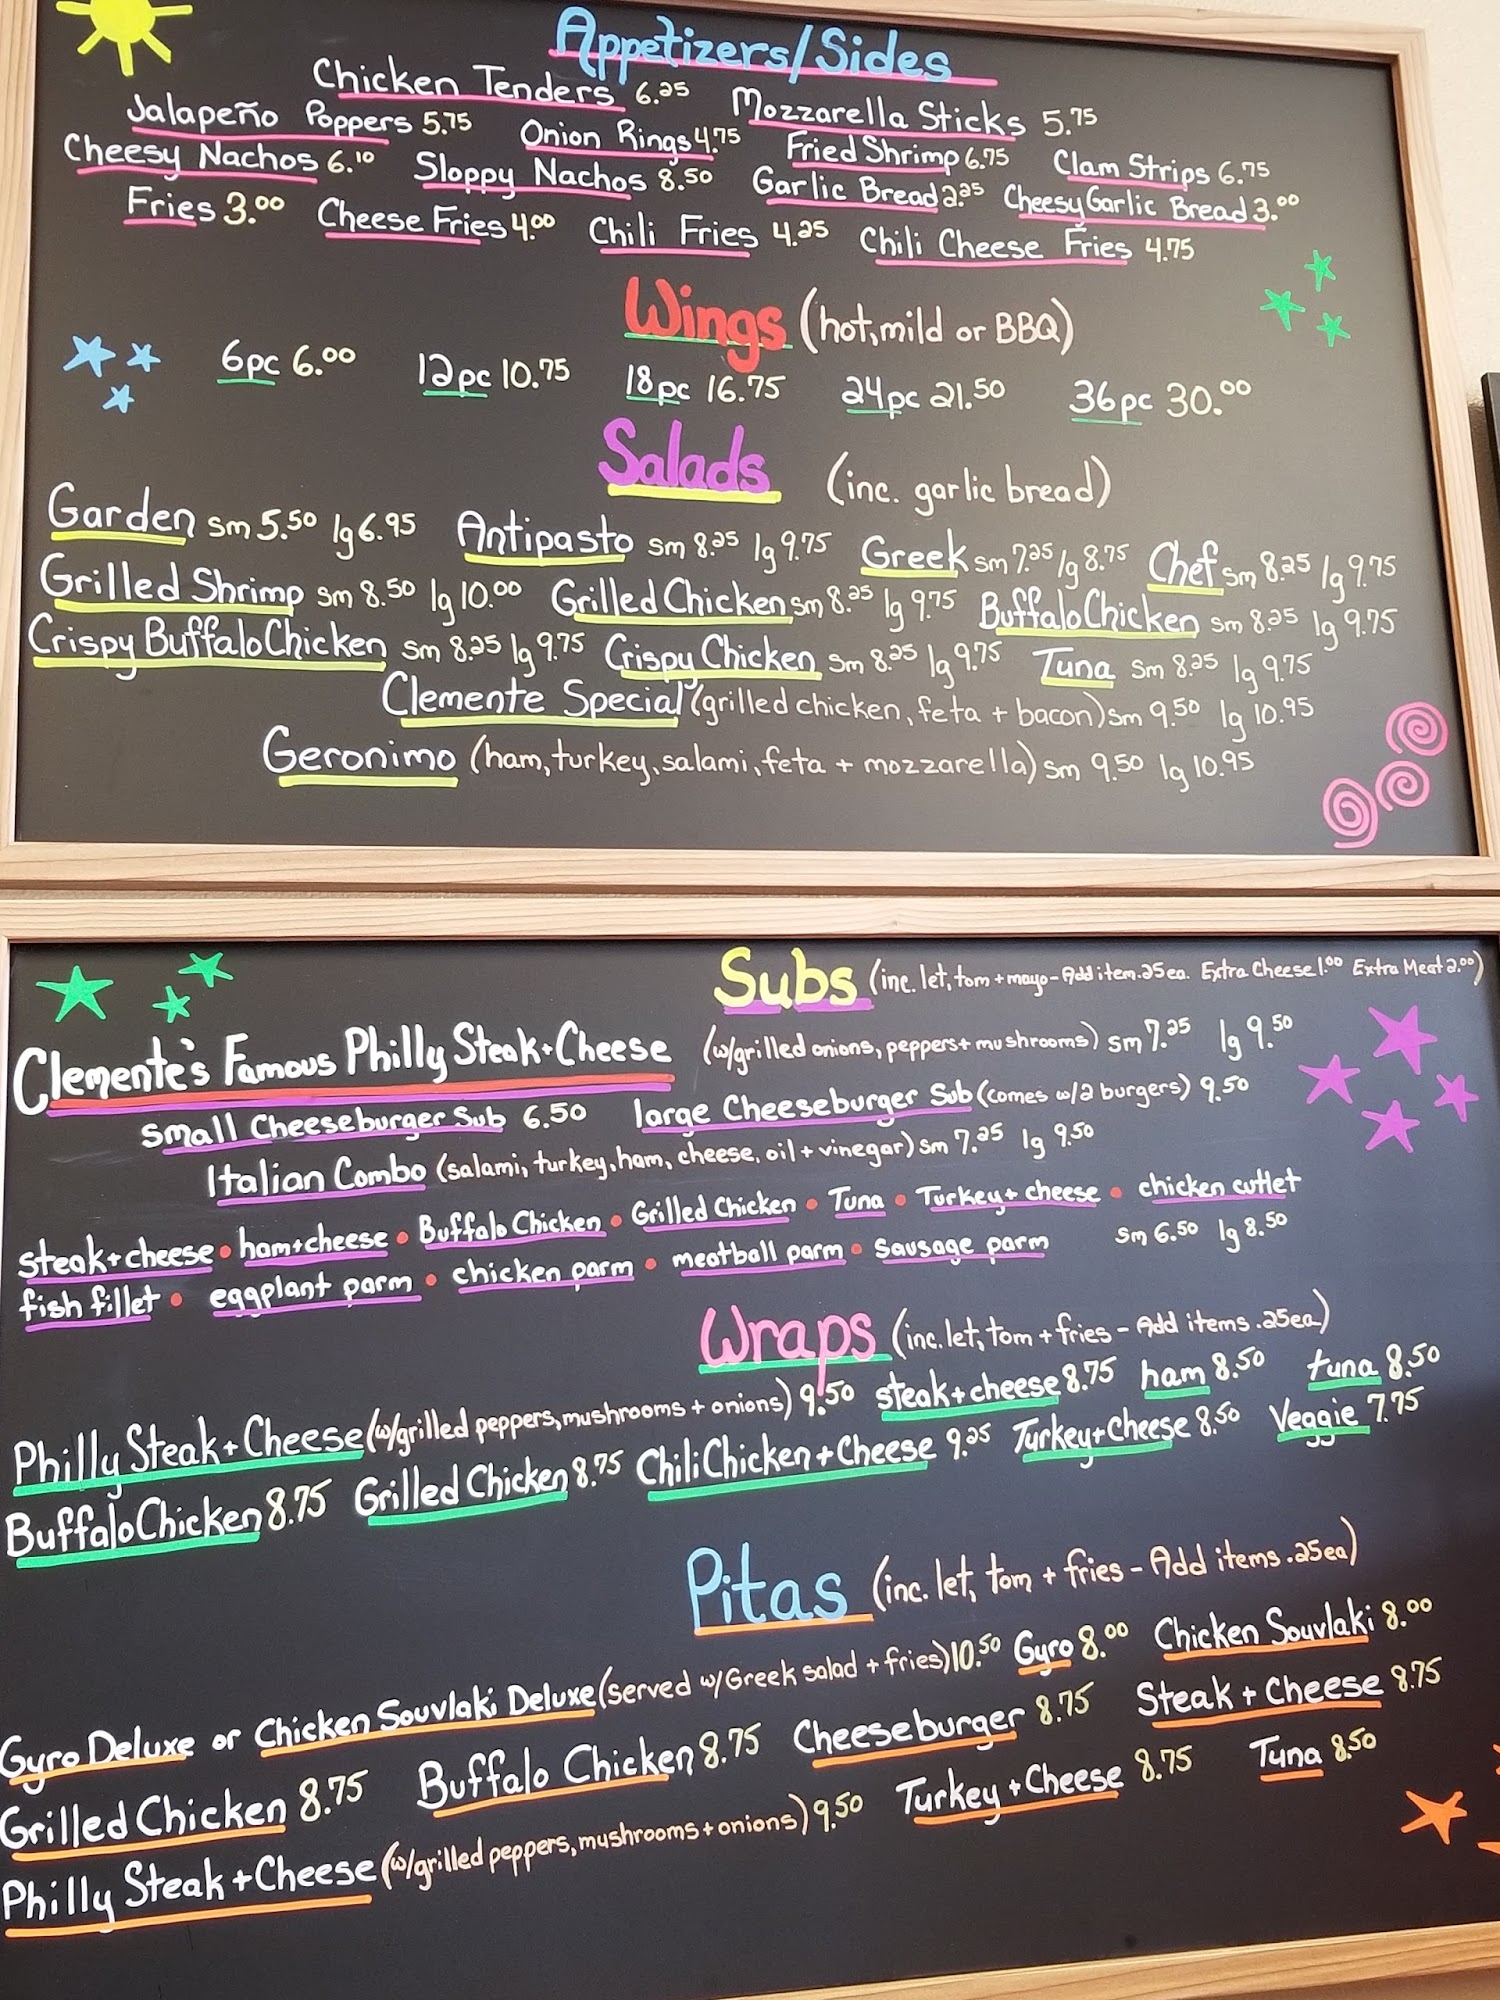 Appetizers/Sides
Chicken Tenders 6.25 Mozzarella Sticks 5.75
Jalapeño Poppers 5.75 Onion Rings 4.75 Fried Shrimp 6.75 Clam Strips 6.75
Cheesy Nachos 6.10 Sloppy Nachos 8.50 Garlic Bread 2.25 Cheesy Garlic Bread 3.00
Fries 3.00 Cheese Fries 4.00 Chili Fries 4.25 Chili Cheese Fries 4.75
Wings (hot, mild or BBQ)
6pc 6.00 12pc 10.75 18pc 16.75 24pc 21.50 36pc 30.00
Salads (inc. garlic bread)
Garden sm 5.50 lg 6.95 Antipasto sm 8.25 lg 9.75 Greek sm 7.25 lg 8.75 Chef sm 8.25 lg 9.75
Grilled Shrimp sm 8.50 lg 10.00 Grilled Chicken sm 8.25 lg 9.75 Buffalo Chicken sm 8.25 lg 9.75
Crispy Buffalo Chicken sm 8.25 lg 9.75 Crispy Chicken sm 8.25 lg 9.75 Tuna sm 8.25 lg 9.75
Clemente Special (grilled chicken, feta + bacon) sm 9.50 lg 10.95
Geronimo (ham, turkey, salami, feta + mozzarella) sm 9.50 lg 10.95
Subs (inc. let, tom + mayo - Add item .25ea. Extra Cheese 1.00 Extra Meat 2.00)
Clemente's Famous Philly Steak + Cheese (w/grilled onions, peppers + mushrooms) sm 7.25 lg 9.50
small Cheeseburger Sub 6.50 large Cheeseburger Sub (comes w/2 burgers) 9.50
Italian Combo (salami, turkey, ham, cheese, oil + vinegar) sm 7.25 lg 9.50
steak + cheese • ham + cheese • Buffalo Chicken • Grilled Chicken • Tuna • Turkey + cheese • chicken cutlet
fish fillet • eggplant parm • chicken parm • meatball parm • sausage parm sm 6.50 lg 8.50
Wraps (inc. let, tom + fries - Add items .25ea)
Philly Steak + Cheese (w/grilled peppers, mushrooms + onions) 9.50 steak + cheese 8.75 ham 8.50 tuna 8.50
Buffalo Chicken 8.75 Grilled Chicken 8.75 Chili Chicken + Cheese 9.25 Turkey + Cheese 8.50 Veggie 7.75
Pitas (inc. let, tom + fries - Add items .25ea)
Gyro Deluxe or Chicken Souvlaki Deluxe (served w/Greek salad + fries) 10.50 Gyro 8.00 Chicken Souvlaki 8.00
Grilled Chicken 8.75 Buffalo Chicken 8.75 Cheeseburger 8.75 Steak + Cheese 8.75
Philly Steak + Cheese (w/grilled peppers, mushrooms + onions) 9.50 Turkey + Cheese 8.75 Tuna 8.50